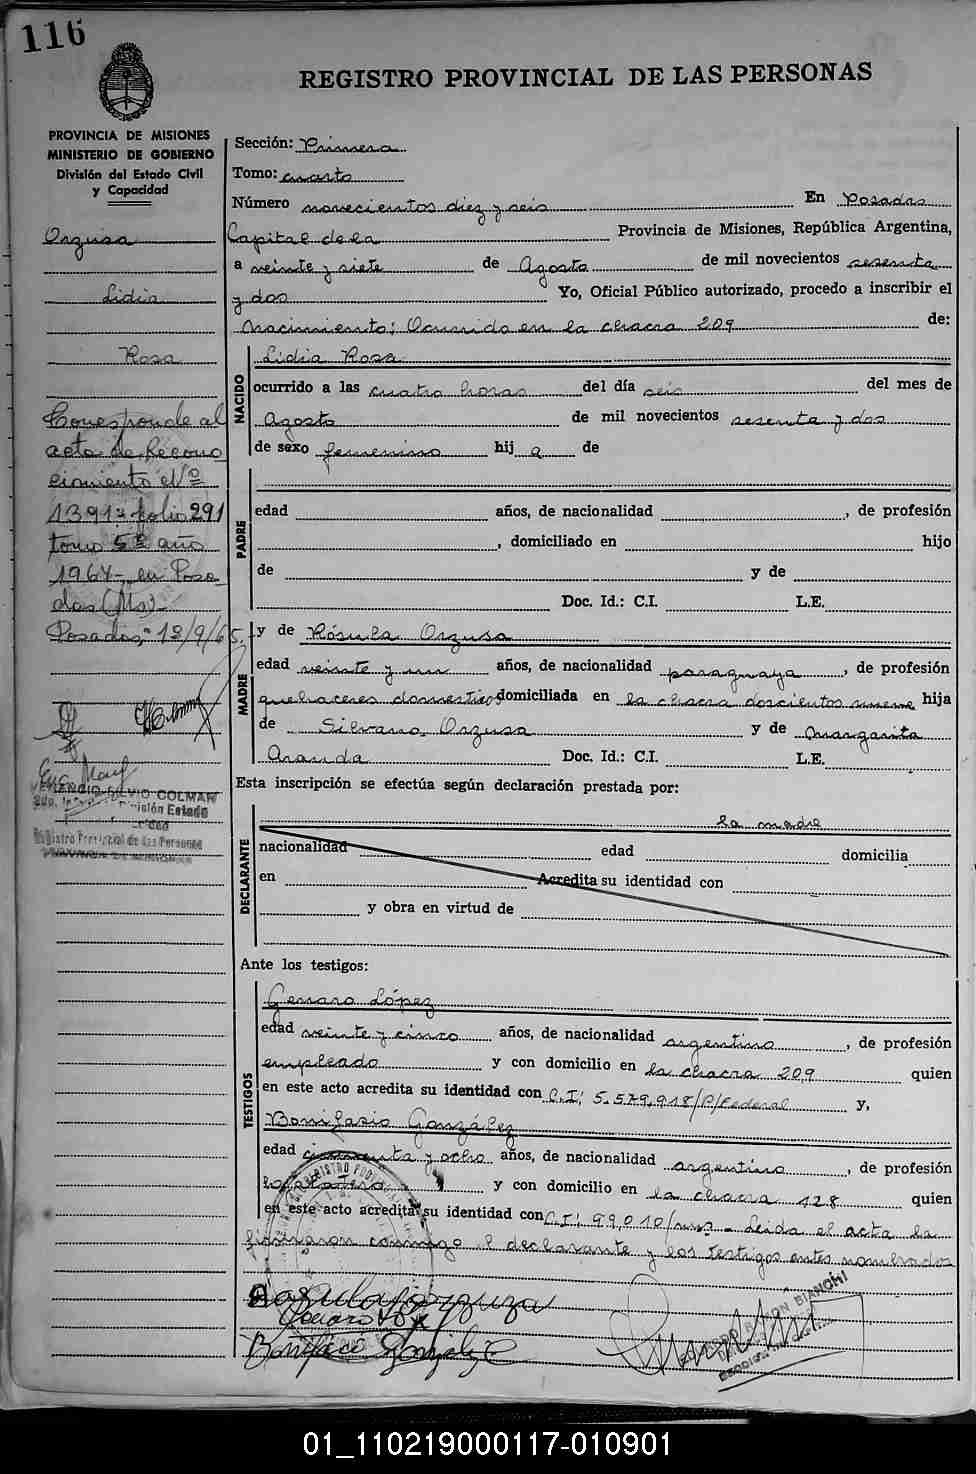 116
REGISTRO PROVINCIAL DE LAS PERSONAS
PROVINCIA DE MISIONES
MINISTERIO DE GOBIERNO
División del Estado Civil
y Capacidad
Orzusa
Lidia
Rosa
Corresponde al
acta de Recono
cimiento el Nº
1391ª folio 291
tomo 5º año
1964, en Posa
das (Ms)-
Posadas, 13/9/65.-
SILVIO COLMAN
División Estado
Registro Provincial de las Personas
Sección: Primera
Tomo: cuarto
Número novecientos diez y seis En Posadas
Capital de la Provincia de Misiones, República Argentina,
a veinte y siete de Agosto de mil novecientos sesenta
y dos Yo, Oficial Público autorizado, procedo a inscribir el
Nacimiento; Ocurrido en la chacra 209 de:
NACIDO
Lidia Rosa
ocurrido a las cuatro horas del día seis del mes de
Agosto de mil novecientos sesenta y dos
de sexo femenino hij a de
PADRE
edad años, de nacionalidad , de profesión
, domiciliado en hijo
de y de
Doc. Id.: C.I. L.E.
MADRE
y de Rósula Orzusa
edad veinte y un años, de nacionalidad paraguaya, de profesión
quehaceres domesticos domiciliada en la chacra doscientos nueve hija
de Silvano Orzusa y de Margarita
Aranda Doc. Id.: C.I. L.E.
Esta inscripción se efectúa según declaración prestada por:
DECLARANTE
la madre
nacionalidad edad domicilia
en Acredita su identidad con
y obra en virtud de
Ante los testigos:
TESTIGOS
Genaro López
edad veinte y cinco años, de nacionalidad argentino, de profesión
empleado y con domicilio en la chacra 209 quien
en este acto acredita su identidad con C.I: 5.579.918/P/Federal y,
Bonifacio González
edad cincuenta y ocho años, de nacionalidad argentino, de profesión
y con domicilio en la chacra 128 quien
en este acto acredita su identidad con C.I: 99.010/mns - Leida el acta la
firmaron conmigo el declarante y los testigos antes nombrados
BIANCHI
01_110219000117-010901